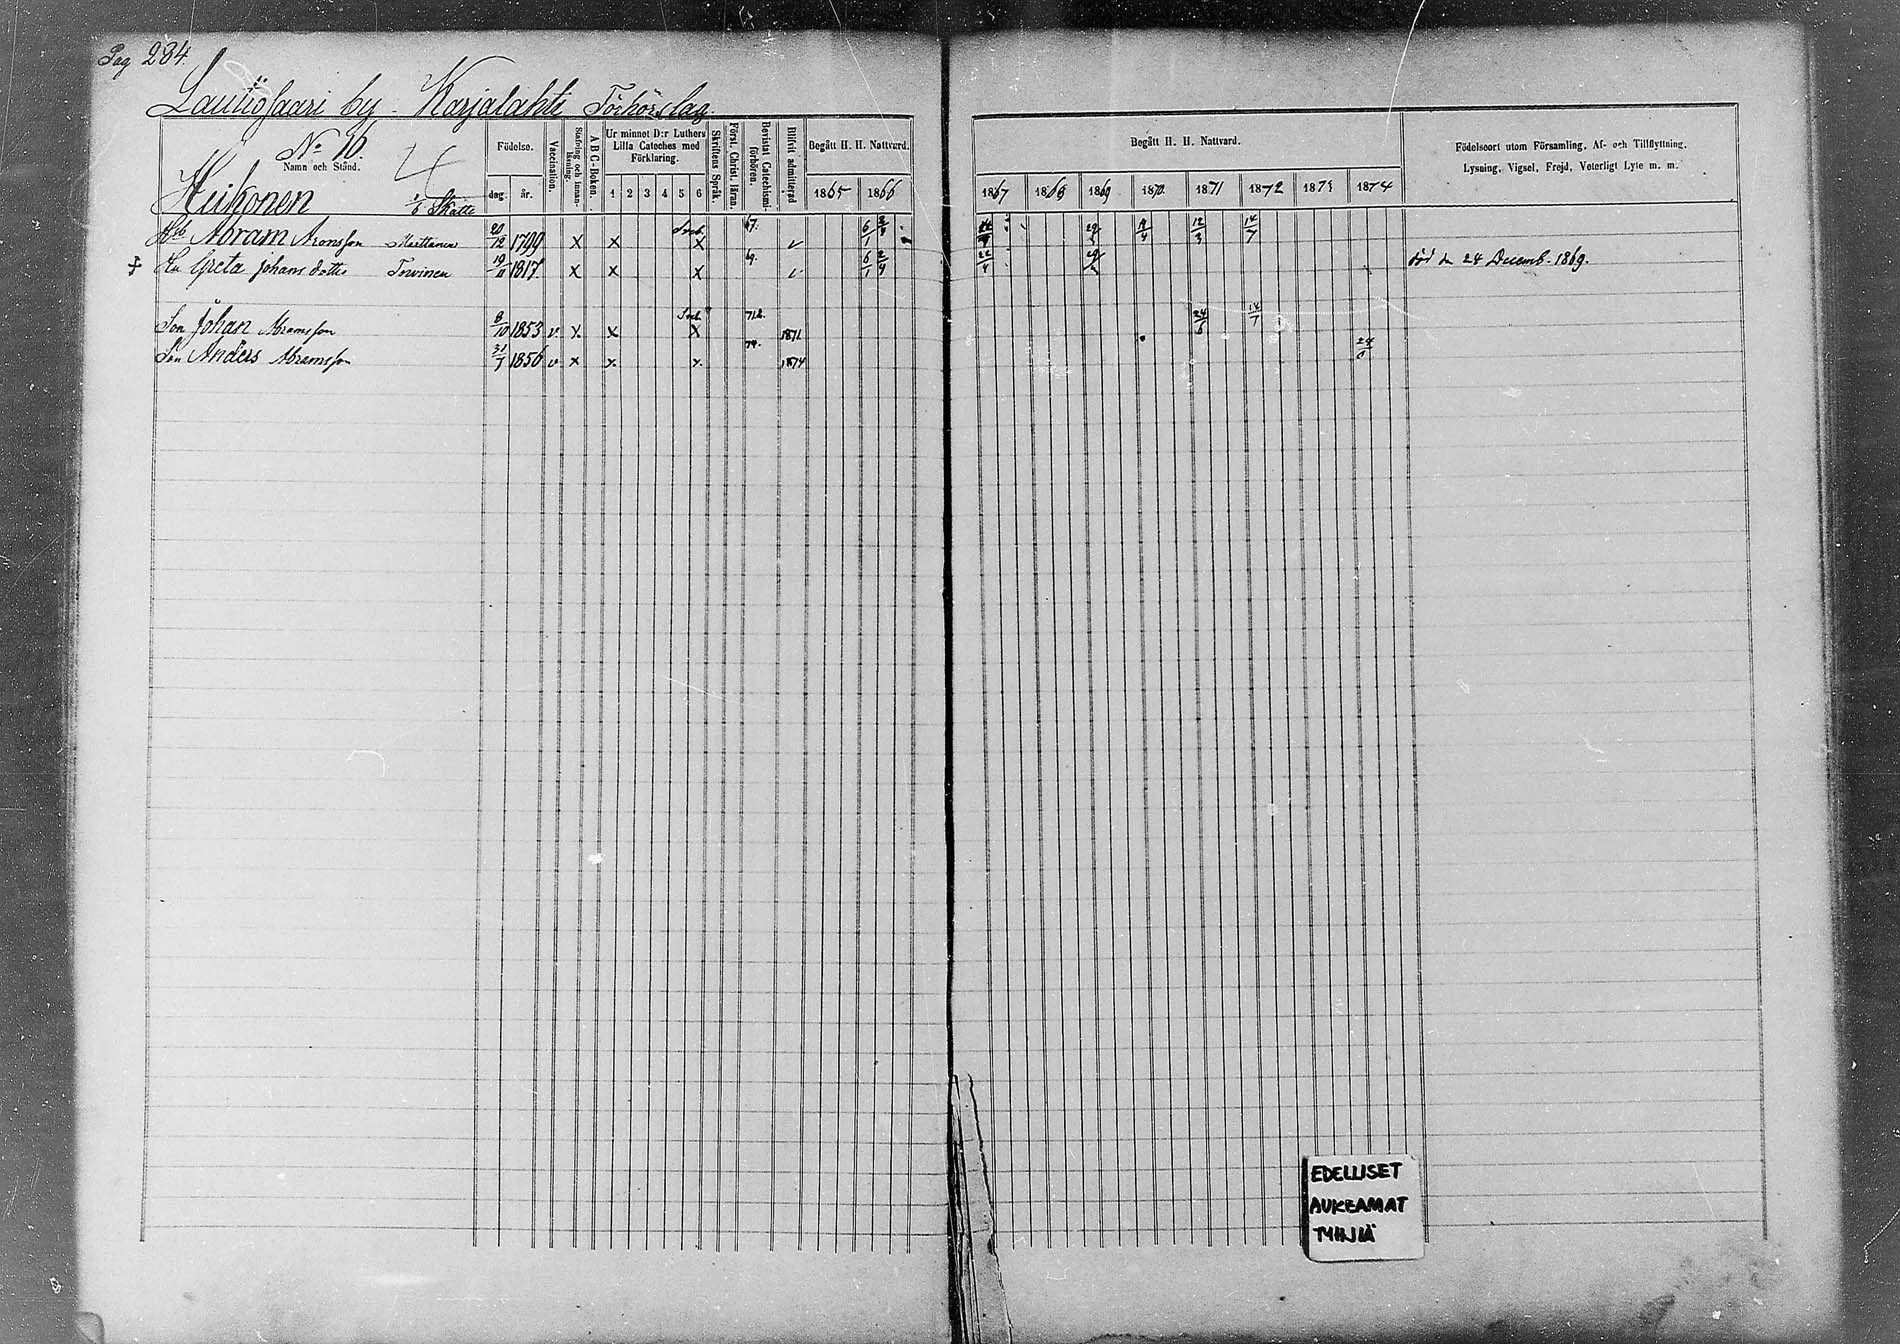 Pag 284.
Lauttosaari by - Karjalahti Förhörslag.
No 16.
Namn och Stånd.
4
Heikonen 1/6 Skatte
Födelse.
dag. år.
Vaccination.
Stafning och innanläsning.
A B C-Boken.
Ur minnet D:r Luthers Lilla Cateches med Förklaring.
1 2 3 4 5 6
Skriftens Språk.
Först. Christ. läran.
Bevistat Catechismiförhören.
Blifvit admitterad
Begått H. H. Nattvard.
1865 1866
Begått H. H. Nattvard.
1867 1868 1869 1870 1871 1872 1873 1874
Födelseort utom Församling, Af- och Tillflyttning.
Lysning, Vigsel, Frejd, Veterligt Lyte m. m.
Abram Aronsson Marttanen 20/12 1799 x x x 67. 6/1 12/3 14/7
Greta Johansdotter Torvinen 19/11 1817 x x x 69. 6/1 död den 24 Decemb. 1869.
Son Johan Abramsson 8/10 1853 v. x x x 71. 1871 24/6 14/7
Son Anders Abramsson 31/7 1856 v x x. x. 74. 1874
EDELLISET
AUKEAMAT
TYHJIÄ